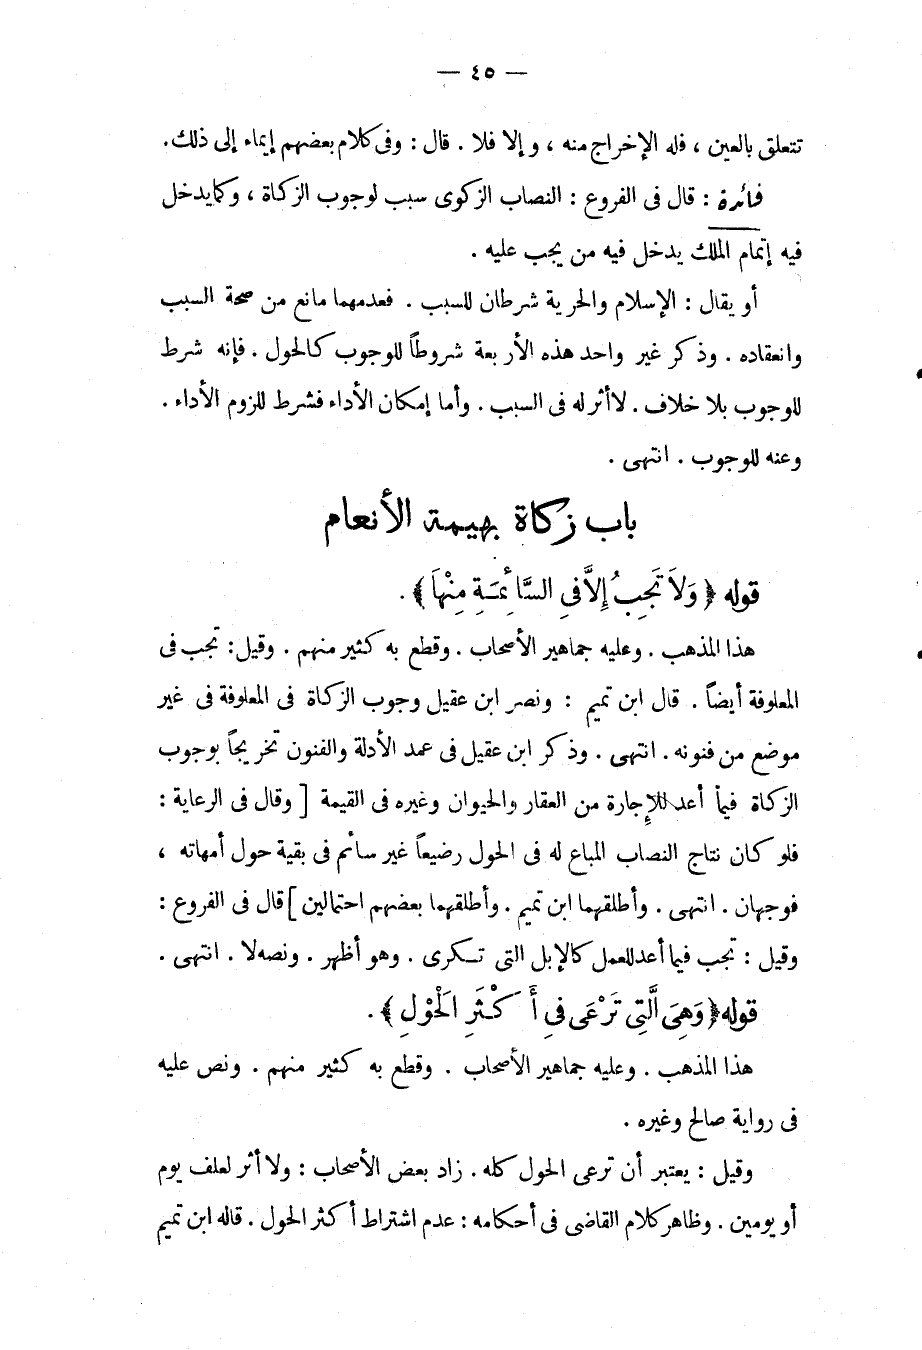 — ٤٥ —
تتعلق بالعين ، فله الإخراج منه ، وإلا فلا . قال : وفى كلام بعضهم إيماء إلى ذلك .
فائدة : قال فى الفروع : النصاب الزكوى سبب لوجوب الزكاة ، وكما يدخل
فيه إتمام الملك يدخل فيه من يجب عليه .
أو يقال : الإسلام والحرية شرطان للسبب . فعدمهما مانع من صحة السبب
وانعقاده . وذكر غير واحد هذه الأربعة شروطاً للوجوب كالحول . فإنه شرط
للوجوب بلا خلاف . لا أثر له فى السبب . وأما إمكان الأداء فشرط للزوم الأداء .
وعنه للوجوب . انتهى .
باب زكاة بهيمة الأنعام
قوله ﴿ وَلاَ تَجِبُ إِلاَّ فِى السَّائِمَةِ مِنْهَا ﴾ .
هذا المذهب . وعليه جماهير الأصحاب . وقطع به كثير منهم . وقيل : تجب فى
المعلوفة أيضاً . قال ابن تميم : ونصر ابن عقيل وجوب الزكاة فى المعلوفة فى غير
موضع من فنونه . انتهى . وذكر ابن عقيل فى عمد الأدلة والفنون تخريجاً بوجوب
الزكاة فيما أعد للإجارة من العقار والحيوان وغيره فى القيمة [ وقال فى الرعاية :
فلو كان نتاج النصاب المباع له فى الحول رضيعاً غير سائم فى بقية حول أمهاته ،
فوجهان . انتهى . وأطلقهما ابن تميم . وأطلقهما بعضهم احتمالين ] قال فى الفروع :
وقيل : تجب فيما أعد للعمل كالإبل التى تكرى . وهو أظهر . ونصه لا . انتهى .
قوله ﴿ وَهِىَ الَّتِى تَرْعَى فِى أَكْثَرِ الْحَوْلِ ﴾ .
هذا المذهب . وعليه جماهير الأصحاب . وقطع به كثير منهم . ونص عليه
فى رواية صالح وغيره .
وقيل : يعتبر أن ترعى الحول كله . زاد بعض الأصحاب : ولا أثر لعلف يوم
أو يومين . وظاهر كلام القاضى فى أحكامه : عدم اشتراط أكثر الحول . قاله ابن تميم